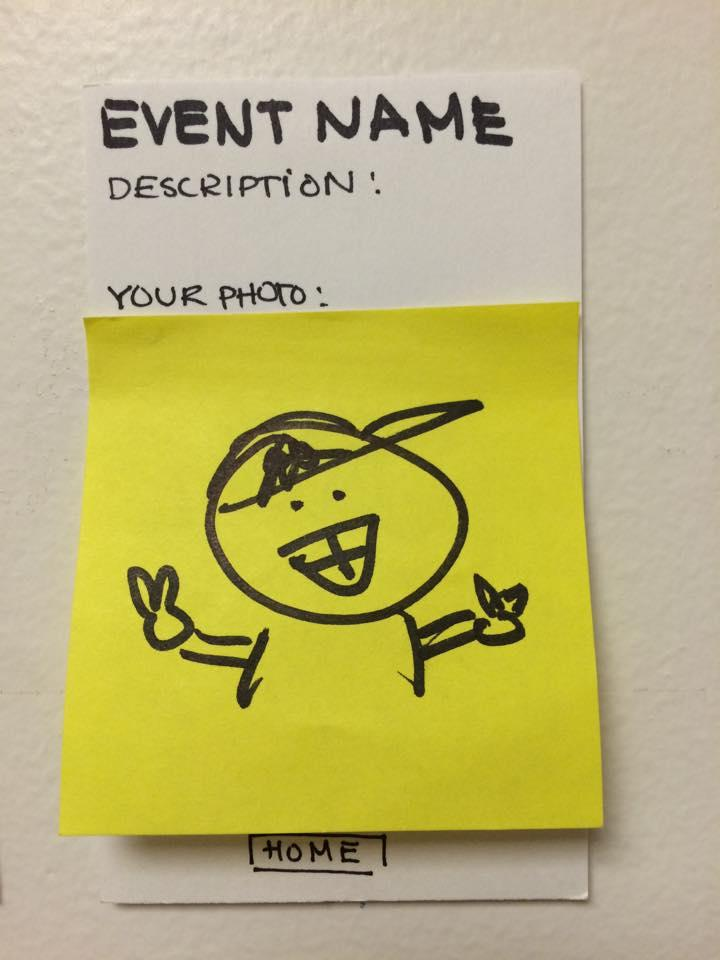 EVENT NAME
DESCRIPTION:
YOUR PHOTO:
HOME